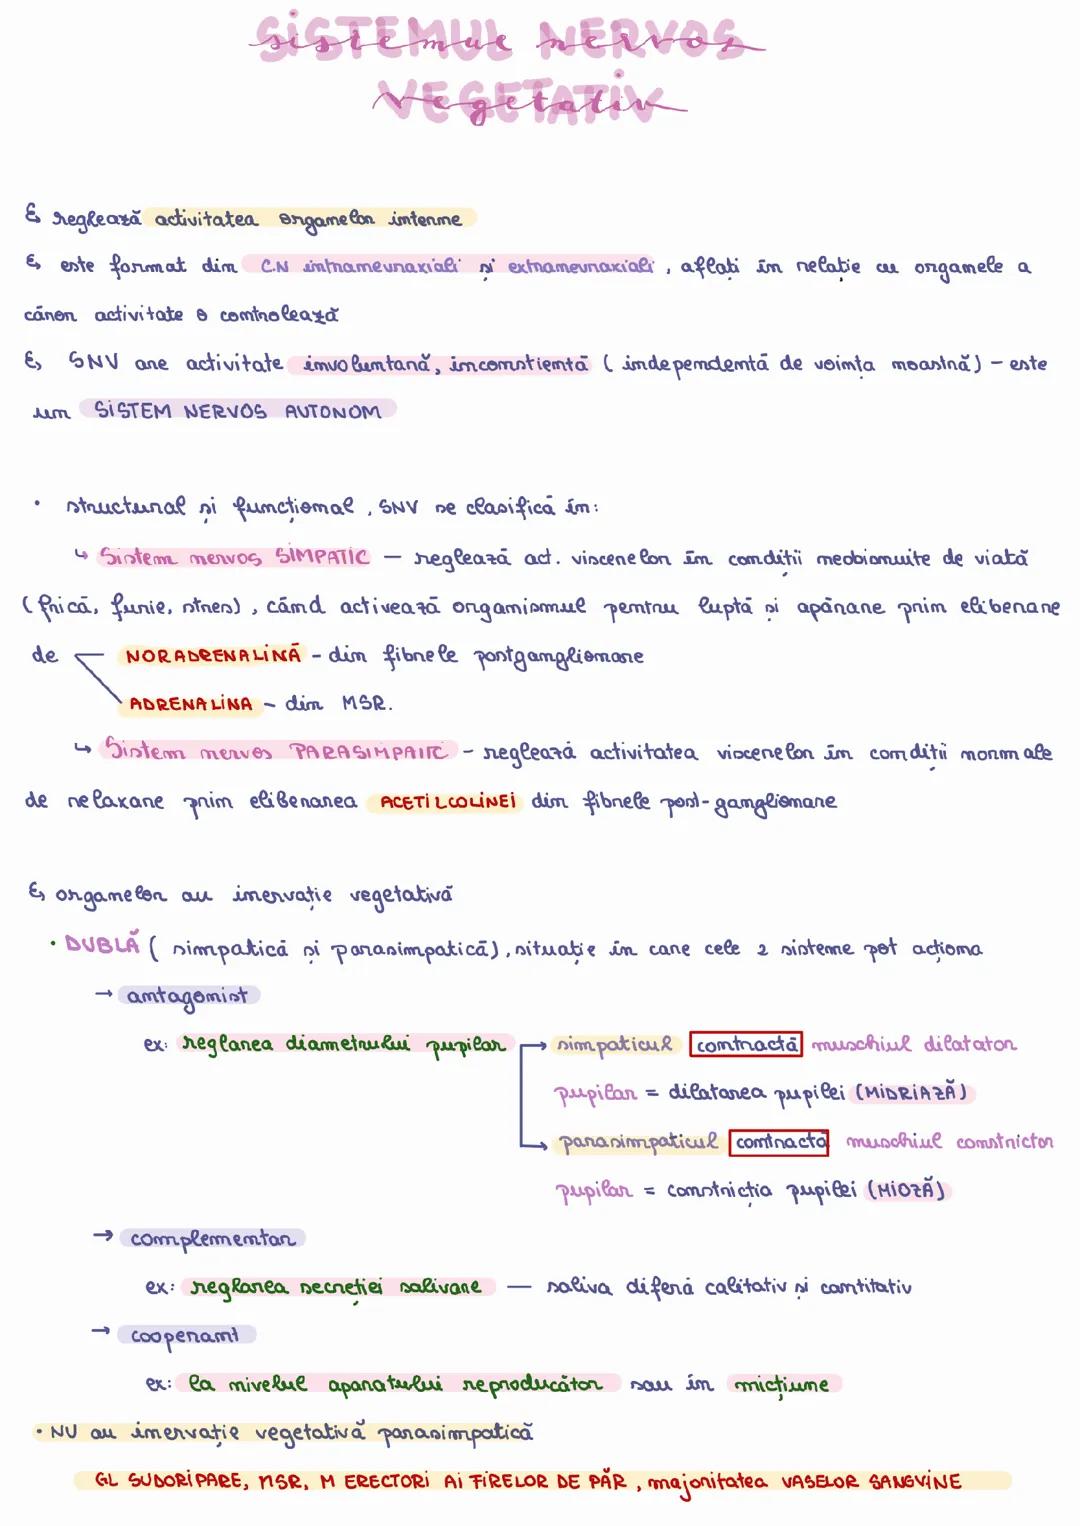 SISTEMUL NERVOS
sistemul nervos
VEGETATIV
vegetativ
reglează activitatea organelor interne
este format din C.N intranevraxiali și extranevraxiali, aflați în relație cu organele a
căror activitate o controlează
SNV are activitate involuntară, inconștientă (independentă de voința noastră) - este
un SISTEM NERVOS AUTONOM
• structural și funcțional, SNV se clasifică în:
↳ Sistem nervos SIMPATIC — reglează act. viscerelor în condiții neobișnuite de viată
(frică, furie, stres), când activează organismul pentru luptă și apărare prin eliberare
de NORADRENALINĂ - din fibrele postganglionare
ADRENALINA - din MSR.
↳ Sistem nervos PARASIMPATIC - reglează activitatea viscerelor în condiții normale
de relaxare prin eliberarea ACETILCOLINEI din fibrele post-ganglionare
organelor au inervație vegetativă
• DUBLĂ ( simpatică și parasimpatică), situație în care cele 2 sisteme pot acționa
→ antagonist
ex: reglarea diametrului pupilar → simpaticul contractă muschiul dilatator
pupilar = dilatarea pupilei (MIDRIAZĂ)
→ parasimpaticul contractă muschiul constrictor
pupilar = constricția pupilei (MIOZĂ)
→ complementar
ex: reglarea secreției salivare — saliva diferă calitativ și cantitativ
→ cooperant
ex: la nivelul aparatului reproducător sau în micțiune
• NU au inervație vegetativă parasimpatică
GL SUDORIPARE, MSR, M ERECTORI AI FIRELOR DE PĂR, majoritatea VASELOR SANGVINE